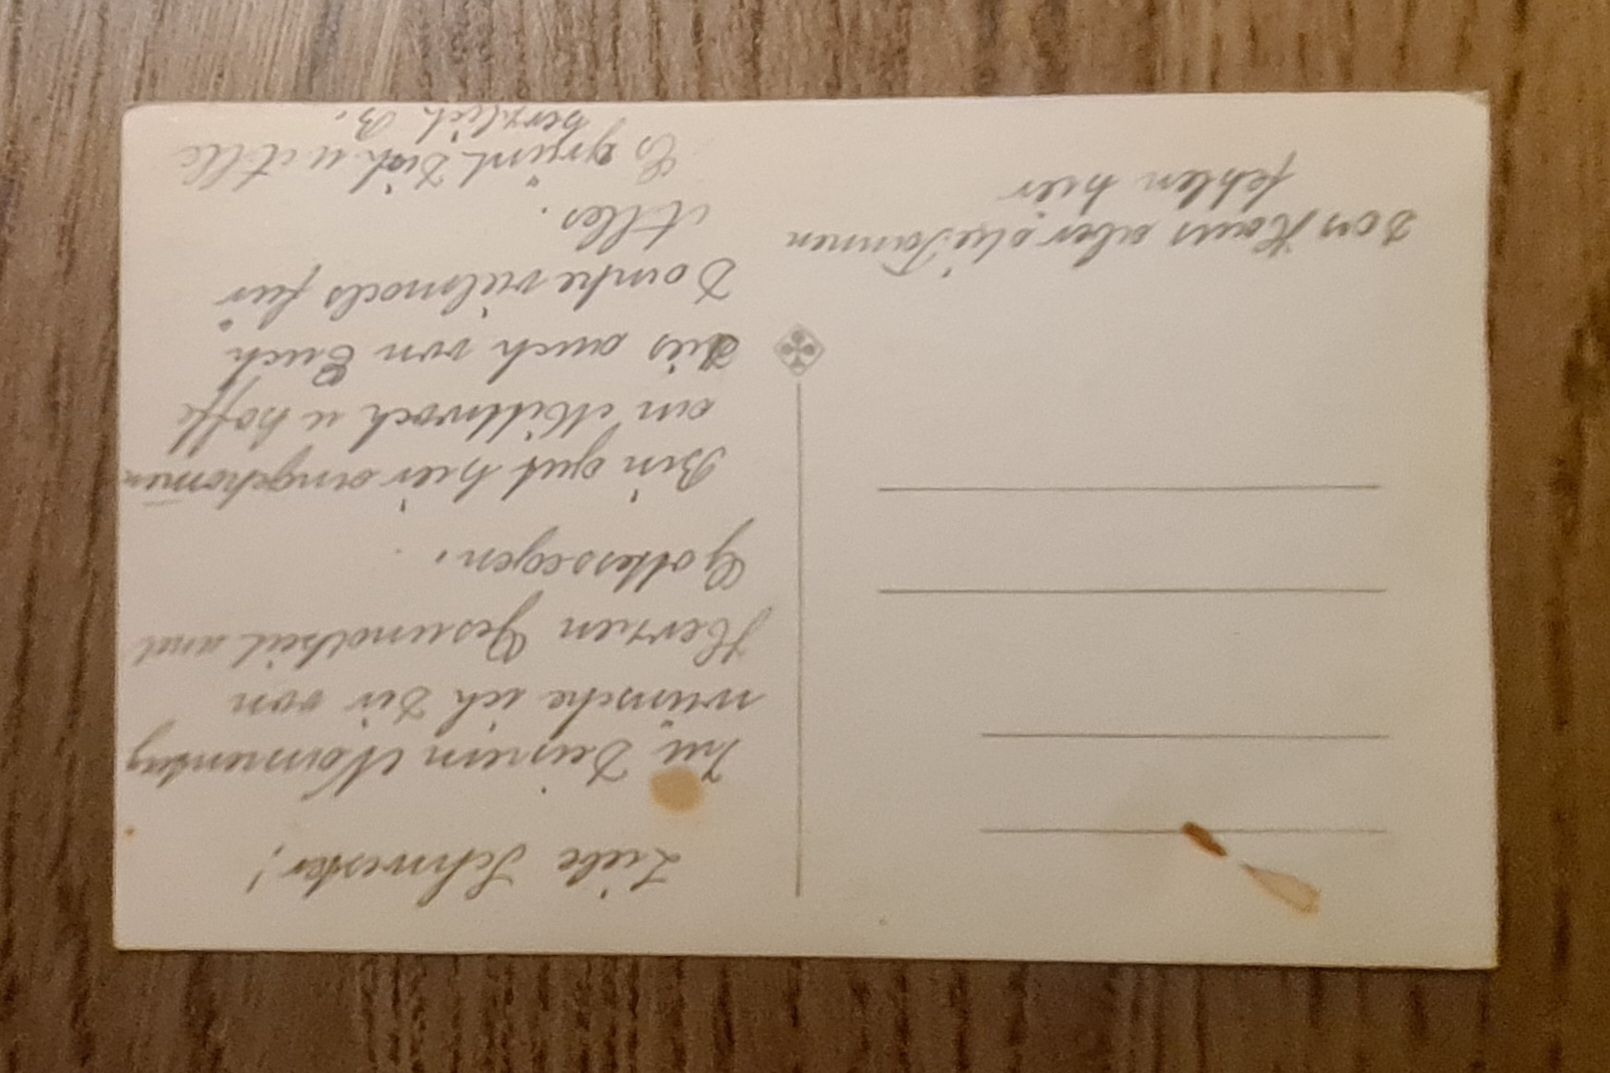 Liebe Schwester!
Zu Deinem Namenstag
wünsche ich Dir von
Herzen Gesundheit und
Gottessegen.
Bin gut hier angekom̄en
am Mittwoch u hoffe
dies auch von Euch
Danke vielmals für
Alles.
Es grüßt Dich u Alle
herzlich B.
Das Haus aber die Tannen
fehlen hier